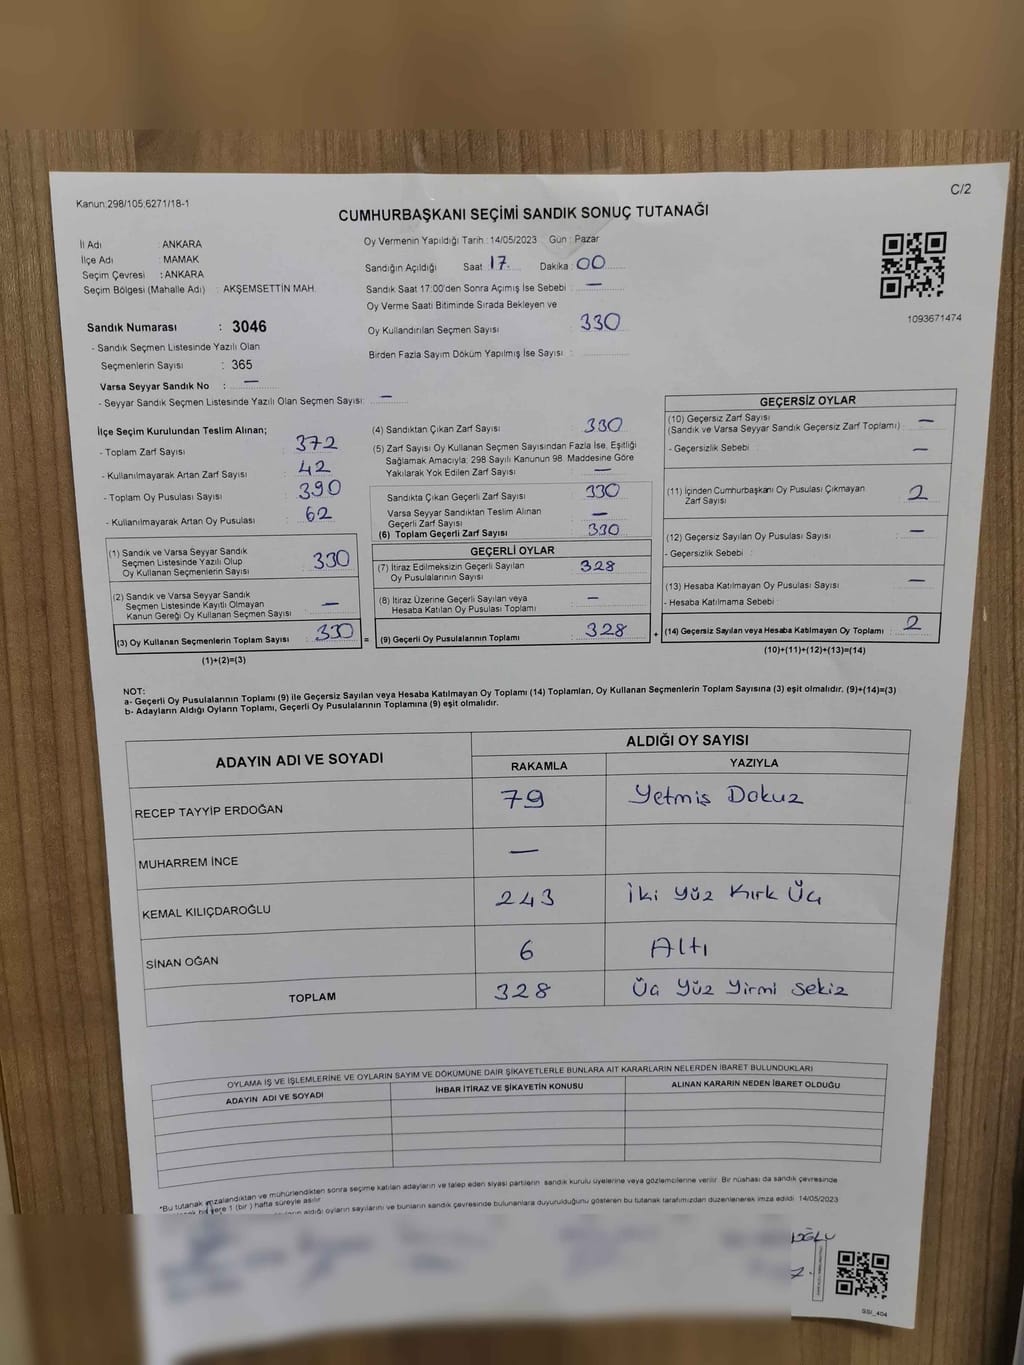 Kanun:298/105;6271/18-1
C/2
CUMHURBAŞKANI SEÇİMİ SANDIK SONUÇ TUTANAĞI
İl Adı : ANKARA
İlçe Adı : MAMAK
Seçim Çevresi : ANKARA
Seçim Bölgesi (Mahalle Adı) : AKŞEMSETTİN MAH.
Sandık Numarası : 3046
- Sandık Seçmen Listesinde Yazılı Olan
Seçmenlerin Sayısı : 365
Varsa Seyyar Sandık No : —
- Seyyar Sandık Seçmen Listesinde Yazılı Olan Seçmen Sayısı: —
Oy Vermenin Yapıldığı Tarih : 14/05/2023 Gün : Pazar
Sandığın Açıldığı Saat 17 Dakika : 00
Sandık Saat 17:00'den Sonra Açımış İse Sebebi : —
Oy Verme Saati Bitiminde Sırada Bekleyen ve
Oy Kullandırılan Seçmen Sayısı : 330
Birden Fazla Sayım Döküm Yapılmış İse Sayısı :
1093671474
İlçe Seçim Kurulundan Teslim Alınan;
- Toplam Zarf Sayısı : 372
- Kullanılmayarak Artan Zarf Sayısı : 42
- Toplam Oy Pusulası Sayısı : 390
- Kullanılmayarak Artan Oy Pusulası : 62
(1) Sandık ve Varsa Seyyar Sandık
Seçmen Listesinde Yazılı Olup
Oy Kullanan Seçmenlerin Sayısı : 330
(2) Sandık ve Varsa Seyyar Sandık
Seçmen Listesinde Kayıtlı Olmayan
Kanun Gereği Oy Kullanan Seçmen Sayısı : —
(3) Oy Kullanan Seçmenlerin Toplam Sayısı : 330 =
(1)+(2)=(3)
(4) Sandıktan Çıkan Zarf Sayısı : 330
(5) Zarf Sayısı Oy Kullanan Seçmen Sayısından Fazla İse, Eşitliği
Sağlamak Amacıyla; 298 Sayılı Kanunun 98. Maddesine Göre
Yakılarak Yok Edilen Zarf Sayısı : —
Sandıkta Çıkan Geçerli Zarf Sayısı : 330
Varsa Seyyar Sandıktan Teslim Alınan
Geçerli Zarf Sayısı : —
(6) Toplam Geçerli Zarf Sayısı : 330
GEÇERLİ OYLAR
(7) İtiraz Edilmeksizin Geçerli Sayılan
Oy Pusulalarının Sayısı : 328
(8) İtiraz Üzerine Geçerli Sayılan veya
Hesaba Katılan Oy Pusulası Toplamı : —
(9) Geçerli Oy Pusulalarının Toplamı : 328 +
GEÇERSİZ OYLAR
(10) Geçersiz Zarf Sayısı
(Sandık ve Varsa Seyyar Sandık Geçersiz Zarf Toplamı) : —
- Geçersizlik Sebebi : —
(11) İçinden Cumhurbaşkanı Oy Pusulası Çıkmayan
Zarf Sayısı : 2
(12) Geçersiz Sayılan Oy Pusulası Sayısı : —
- Geçersizlik Sebebi :
(13) Hesaba Katılmayan Oy Pusulası Sayısı : —
- Hesaba Katılmama Sebebi :
(14) Geçersiz Sayılan veya Hesaba Katılmayan Oy Toplamı : 2
(10)+(11)+(12)+(13)=(14)
NOT:
a- Geçerli Oy Pusulalarının Toplamı (9) ile Geçersiz Sayılan veya Hesaba Katılmayan Oy Toplamı (14) Toplamları, Oy Kullanan Seçmenlerin Toplam Sayısına (3) eşit olmalıdır. (9)+(14)=(3)
b- Adayların Aldığı Oyların Toplamı, Geçerli Oy Pusulalarının Toplamına (9) eşit olmalıdır.
ADAYIN ADI VE SOYADI ALDIĞI OY SAYISI
RAKAMLA YAZIYLA
RECEP TAYYİP ERDOĞAN 79 Yetmiş Dokuz
MUHARREM İNCE —
KEMAL KILIÇDAROĞLU 243 İki Yüz Kırk Üç
SİNAN OĞAN 6 Altı
TOPLAM 328 Üç Yüz Yirmi Sekiz
OYLAMA İŞ VE İŞLEMLERİNE VE OYLARIN SAYIM VE DÖKÜMÜNE DAİR ŞİKAYETLERLE BUNLARA AİT KARARLARIN NELERDEN İBARET BULUNDUKLARI
ADAYIN ADI VE SOYADI İHBAR İTİRAZ VE ŞİKAYETİN KONUSU ALINAN KARARIN NEDEN İBARET OLDUĞU
*Bu tutanak imzalandıktan ve mühürlendikten sonra seçime katılan adayların ve talep eden siyasi partilerin sandık kurulu üyelerine veya gözlemcilerine verilir. Bir nüshası da sandık çevresinde
bir yere 1 (bir) hafta süreyle asılır.
aldığı oyların sayılarını ve bunların sandık çevresinde bulunanlara duyurulduğunu gösteren bu tutanak tarafımızdan düzenlenerek imza edildi. 14/05/2023
SSİ_404